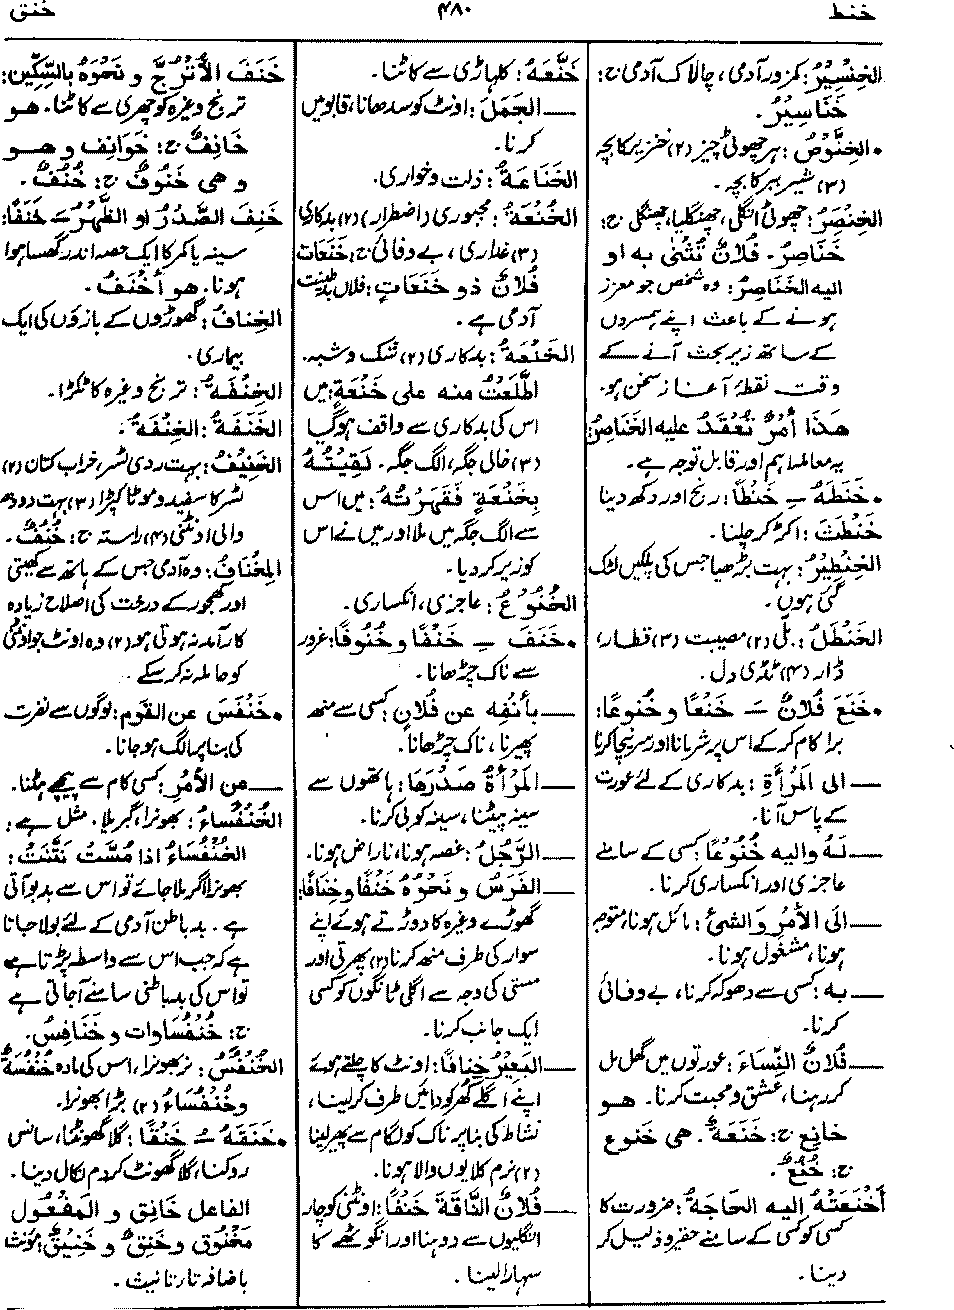 خنط
۴۸۰
خنق
الخِنْسِیْرُ: کمزور آدمی، چالاک آدمی ج:
خَنَاسِیْرُ.
• الخِنَّوْصُ: ہر چھوٹی چیز (۲) خنزیر کا بچہ
(۳) شیر ببر کا بچہ.
الخِنْصَرُ: چھوٹی انگلی، چھنگلیا، چھنگلی ج:
خَنَاصِرُ. فُلَانٌ تُثْنٰی بہ او
الیہ الخَنَاصِرُ: وہ شخص جو معزز
ہونے کے باعث اپنے ہمسروں
کے ساتھ زیر بحث آنے کے
وقت نقطۂ آغاز سخن ہو.
ھٰذَا أَمْرٌ تُعْقَدُ علیہ الخَنَاصِرُ:
یہ معاملہ اہم اور قابل توجہ ہے.
• خَنَطَہُ ـِ خَنْطًا: رنج اور دکھ دینا
خَنْطَثَ: اکڑ کر چلنا.
الخِنْطِیْرُ: بہت بڑھیا جس کی پلکیں لٹک
گئی ہوں.
الخَنْطَلُ: بلّی (۲) مصیبت (۳) قطار،
ڈار (۴) ٹڈی دل.
• خَنَعَ فُلَانٌ ـَ خَنْعًا وخُنُوعًا:
برا کام کرکے اس پر شرمانا اور سر نیچا کرنا
ــــ الی المَرْأَۃِ: بدکاری کے لئے عورت
کے پاس آنا.
ــــ لَہُ والیہ خُنُوعًا: کسی کے سامنے
عاجزی اور انکساری کرنا.
ــــ اِلَی الأَمْرِ وَالشیْءِ: مائل ہونا، متوجہ
ہونا، مشغول ہونا.
ــــ بِہ: کسی سے دھوکہ کرنا، بے وفائی
کرنا.
ــــ فُلَانٌ النِّسَاءَ: عورتوں میں گھل مل
کر رہنا، عشق و محبت کرنا. ھو
خَانِع ج: خَنَعَۃٌ. ھی خَنوع
ج: خُنُعٌ.
أَخْنَعَتْہُ الیہ الحَاجَۃُ: ضرورت کا
کسی کو کسی کے سامنے حقیر و ذلیل کر
دینا.
خَنَّعَہُ: کلہاڑی سے کاٹنا.
ــــ الجَمَلَ: اونٹ کو سدھانا، قابو میں
کرنا.
الخَنَاعَۃُ: ذلت و خواری.
الخُنْعَۃُ: مجبوری (اضطرار) (۲) بدکاری
(۳) غداری، بے وفائی ج: خَنَعَات
فُلَانٌ ذو خَنَعَاتٍ: فلاں بد طینت
آدمی ہے.
الخَنْعَۃُ: بدکاری (۲) شک و شبہ.
اطَّلَعْتُ منہ علی خَنْعَۃٍ: میں
اس کی بدکاری سے واقف ہوگیا
(۳) خالی جگہ، الگ جگہ. لَقِیْتُہُ
بِخَنْعَۃٍ فَقَھَرْتُہُ: میں اس
سے الگ جگہ میں ملا اور میں نے اس
کو زیر کر دیا.
الخُنُوْعُ: عاجزی، انکساری.
• خَنَفَ ـِ خَنْفًا وخُنُوفًا: غرور
سے ناک چڑھانا.
ــــ بأَنْفِہ عن فُلَانٍ: کسی سے منھ
پھیرنا، ناک چڑھانا.
ــــ المَرْأَۃُ صَدْرَھَا: ہاتھوں سے
سینہ پیٹنا، سینہ کوبی کرنا.
ــــ الرَّجُلُ: غصہ ہونا، ناراض ہونا.
ــــ الفَرَسُ ونَحْوُہُ خَنْفًا وخِنَافًا:
گھوڑے وغیرہ کا دوڑتے ہوئے اپنے
سوار کی طرف منھ کرنا (۲) پھرتی اور
مستی کی وجہ سے اگلی ٹانگوں کو کسی
ایک جانب کرنا.
ــــ البَعِیْرُ خِنَافًا: اونٹ کا چلتے ہوئے
اپنے اگلے کھر کو دائیں طرف کر لینا،
نشاط کی بنا پر ناک کو لگام سے پھیر لینا
(۲) نرم کلایوں والا ہونا.
ــــ فُلَانٌ النَّاقَۃَ خَنْفًا: اونٹنی کو چار
انگلیوں سے دوہنا اور انگوٹھے کا
سہارا لینا.
خَنَفَ الأُتْرُجَّ و نَحْوَہُ بالسِّکِّیْنِ:
ترنج وغیرہ کو چھری سے کاٹنا. ھو
خَانِفٌ ج: خَوَانِف و ھو
و ھی خَنُوفٌ ج: خُنُفٌ.
خَنِفَ الصَّدْرُ او الظَّھْرُ ـَ خَنَفًا:
سینہ یا کمر کا ایک حصہ اندر گھسا ہوا
ہونا. ھو أَخْنَفُ.
الخِنَافُ: گھوڑوں کے بازوؤں کی ایک
بیماری.
الخِنْفَۃُ: ترنج وغیرہ کا ٹکڑا.
الخَنَفَۃُ: الخِنْفَۃُ.
الخَنِیْفُ: بہت ردی لٹر، خراب کتان (۲)
لٹر کا سفید و موٹا کپڑا (۳) بہت دودھ
والی اونٹنی (۴) راستہ ج: خُنُفٌ.
المِخْنَافُ: وہ آدمی جس کے ہاتھ سے کھیتی
اور کھجور کے درخت کی اصلاح زیادہ
کار آمد نہ ہوتی ہو (۲) وہ اونٹ جو اونٹنی
کو حاملہ نہ کرسکے.
• خَنْفَسَ عن القَوْمِ: لوگوں سے نفرت
کی بنا پر الگ ہو جانا.
ــــ عن الأَمْرِ: کسی کام سے پیچھے ہٹنا.
الخُنْفُسَاءُ: بھونرا، گبریلا. مثل ہے:
الخُنْفُسَاءُ اذا مُسَّتْ نَتَّنَتْ:
بھونرا (گبریلا) جائے تو اس سے بدبو آتی
ہے. بد باطن آدمی کے لئے بولا جاتا
ہے کہ جب اس سے واسطہ پڑتا ہے
تو اس کی بد باطنی سامنے آجاتی ہے
ج: خُنْفُسَاوات و خَنَافِسُ.
الخُنْفُسُ: نر بھونرا، اس کی مادہ خُنْفُسَۃٌ
وخُنْفُسَاءُ (۲) بڑا بھونرا.
• خَنَقَہُ ـُ خَنْقًا: گلا گھونٹنا، سانس
روکنا، گلا گھونٹ کر دم نکال دینا.
الفاعل خَانِق و المَفْعُول
مَخْنُوق و خَنِقٌ و خَنِیْقٌ: مؤنث
باضافہ تاء تانیث.